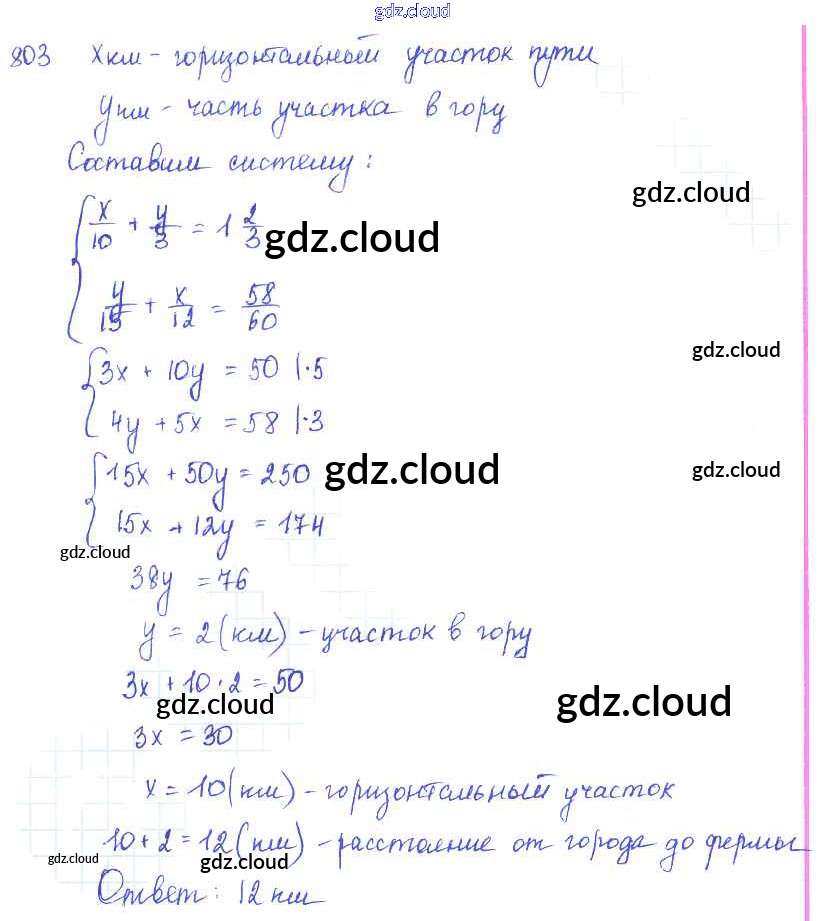 gdz.cloud
803 Xкм - горизонтальный участок пути
Yкм - часть участка в гору
gdz.cloud
Составим систему:
x/10 + y/3 = 1 2/3
gdz.cloud
y/15 + x/12 = 58/60
gdz.cloud
3x + 10y = 50 |·5
4y + 5x = 58 |·3
15x + 50y = 250
gdz.cloud
gdz.cloud
15x + 12y = 174
gdz.cloud
38y = 76
y = 2 (км) - участок в гору
3x + 10·2 = 50
gdz.cloud
gdz.cloud
3x = 30
x = 10 (км) - горизонтальный участок
10 + 2 = 12 (км) - расстояние от города до фермы
gdz.cloud
gdz.cloud
gdz.cloud
Ответ: 12 км